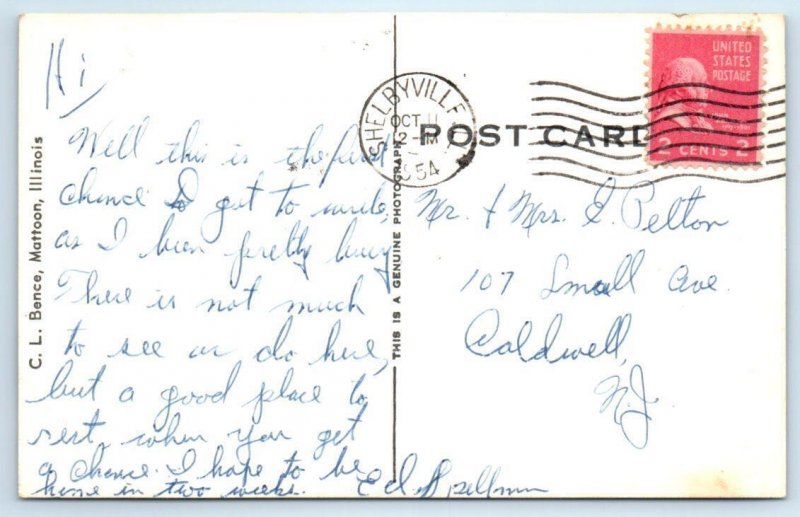 C. L. Bence, Mattoon, Illinois
Hi
Well this is the first
chance I got to write,
as I been pretty busy
There is not much
to see or do here,
but a good place to
rest, when you get
a chance. I hope to be
home in two weeks. Ed Spellman
THIS IS A GENUINE PHOTOGRAPH
SHELBYVILLE
OCT 11
2-PM
1954
POST CARD
UNITED
STATES
POSTAGE
2 CENTS 2
Mr. & Mrs. I. Pelton
107 Small Ave.
Caldwell,
N.J.